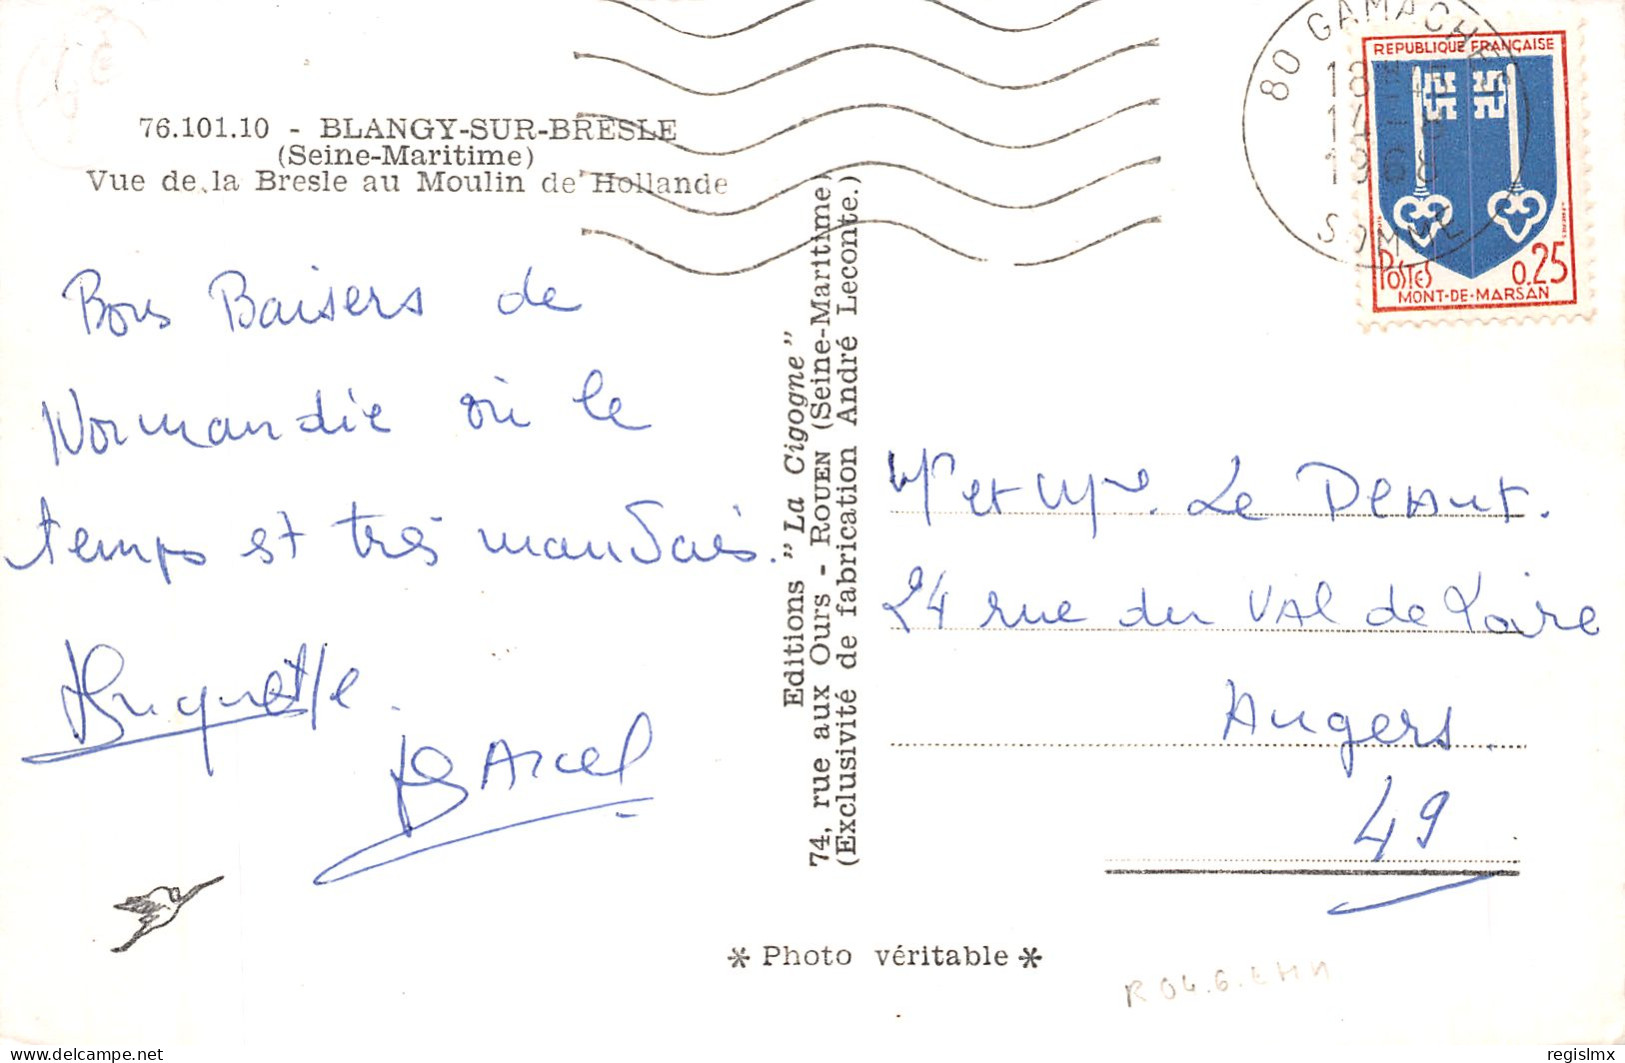 76.101.10 - BLANGY-SUR-BRESLE
(Seine-Maritime)
Vue de la Bresle au Moulin de Hollande
Bons Baisers de
Normandie où le
temps est très mauvais.
Huguette.
Marcel
Editions "La Cigogne"
74, rue aux Ours - ROUEN (Seine-Maritime)
(Exclusivité de fabrication André Leconte.)
80 GAMACHES
18H45
1968
SOMME
REPUBLIQUE FRANÇAISE
POSTES
0.25
MONT-DE-MARSAN
Mr et Mme. Le
24 rue du Val de Loire
Angers.
49
* Photo véritable *
delcampe.net
regislmx